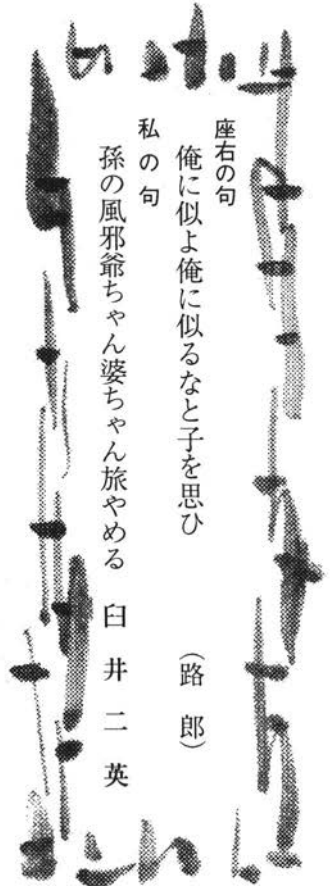 座右の句
俺に似よ俺に似るなと子を思ひ　（路郎）
私の句
孫の風邪爺ちゃん婆ちゃん旅やめる　臼井二英